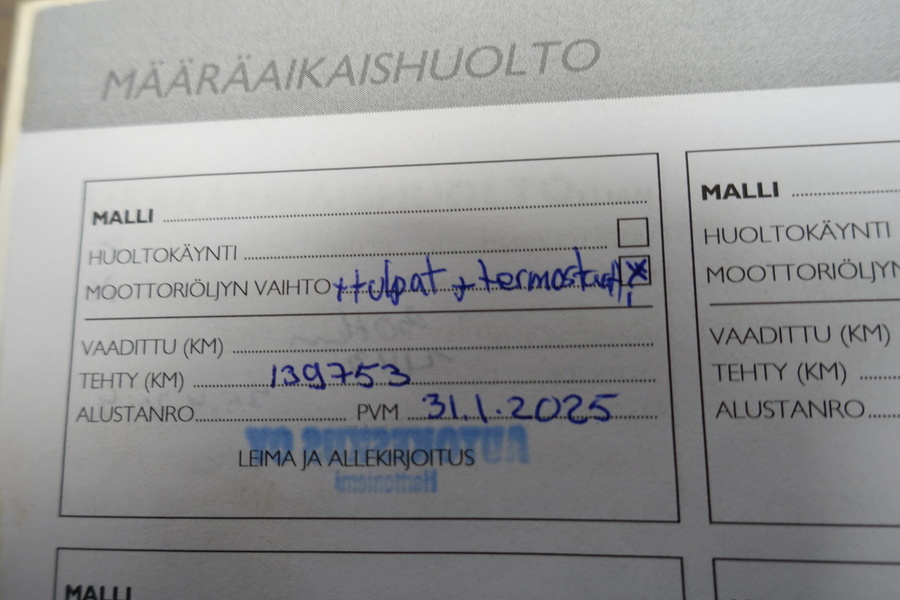 MÄÄRÄAIKAISHUOLTO
MALLI
HUOLTOKÄYNTI
MOOTTORIÖLJYN VAIHTO ++tulpat + termostaatti x
VAADITTU (KM)
TEHTY (KM) 139753
ALUSTANRO PVM 31.1.2025
LEIMA JA ALLEKIRJOITUS
AUTOKESKUS OY
MALLI
HUOLTOKÄYNTI
MOOTTORIÖLJYN
VAADITTU (KM)
TEHTY (KM)
ALUSTANRO
MALLI